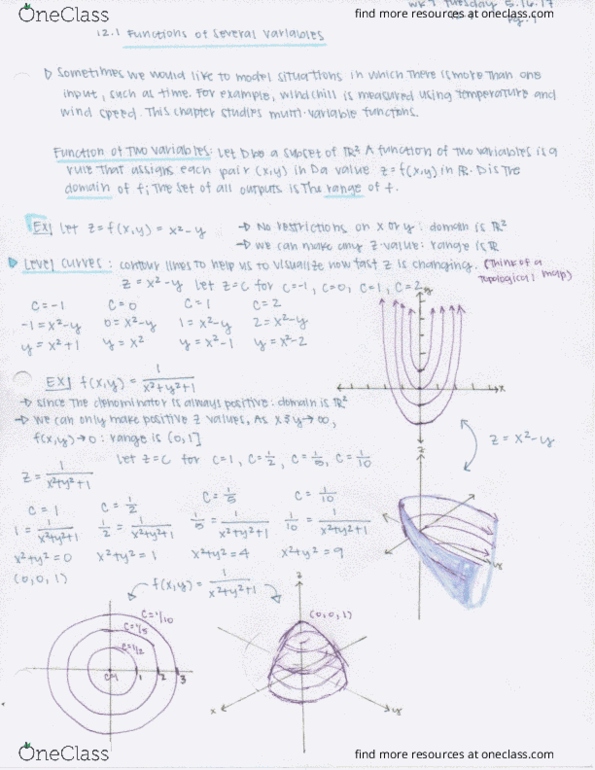 OneClass
find more resources at oneclass.com
wk 7 Tuesday 5.16.17
pg. 1
12.1 Functions of Several Variables
Sometimes we would like to model situations in which there is more than one
input, such as time. For example, windchill is measured using temperature and
wind speed. This chapter studies multi-variable functions.
Function of Two Variables: Let D be a subset of ℝ² A function of two variables is a
rule that assigns each pair (x,y) in D a value z=f(x,y) in ℝ. D is the
domain of f; The set of all outputs is the range of f.
EX] let z=f(x,y) = x²-y → No restrictions on x or y: domain is ℝ²
→ we can make any z-value: range is ℝ
Level curves: contour lines to help us to visualize how fast z is changing. (Think of a
topological map)
z = x²-y let z=c for c=-1, c=0, c=1, c=2
c=-1 c=0 c=1 c=2
-1=x²-y 0=x²-y 1=x²-y 2=x²-y
y=x²+1 y=x² y=x²-1 y=x²-2
y
x
EX] f(x,y) = 1/(x²+y²+1)
→ since the denominator is always positive: domain is ℝ²
→ we can only make positive z values, As x&y→∞,
f(x,y)→0: range is (0,1]
z = x²-y
z
z = 1/(x²+y²+1) let z=c for c=1, c=1/2, c=1/5, c=1/10
c=1 c=1/2 c=1/5 c=1/10
1 = 1/(x²+y²+1) 1/2 = 1/(x²+y²+1) 1/5 = 1/(x²+y²+1) 1/10 = 1/(x²+y²+1)
x²+y²=0 x²+y²=1 x²+y²=4 x²+y²=9
(0,0,1)
f(x,y) = 1/(x²+y²+1)
z
(0,0,1)
c=1/10
c=1/5
c=1/2
c=1 1 2 3
x y
OneClass
find more resources at oneclass.com